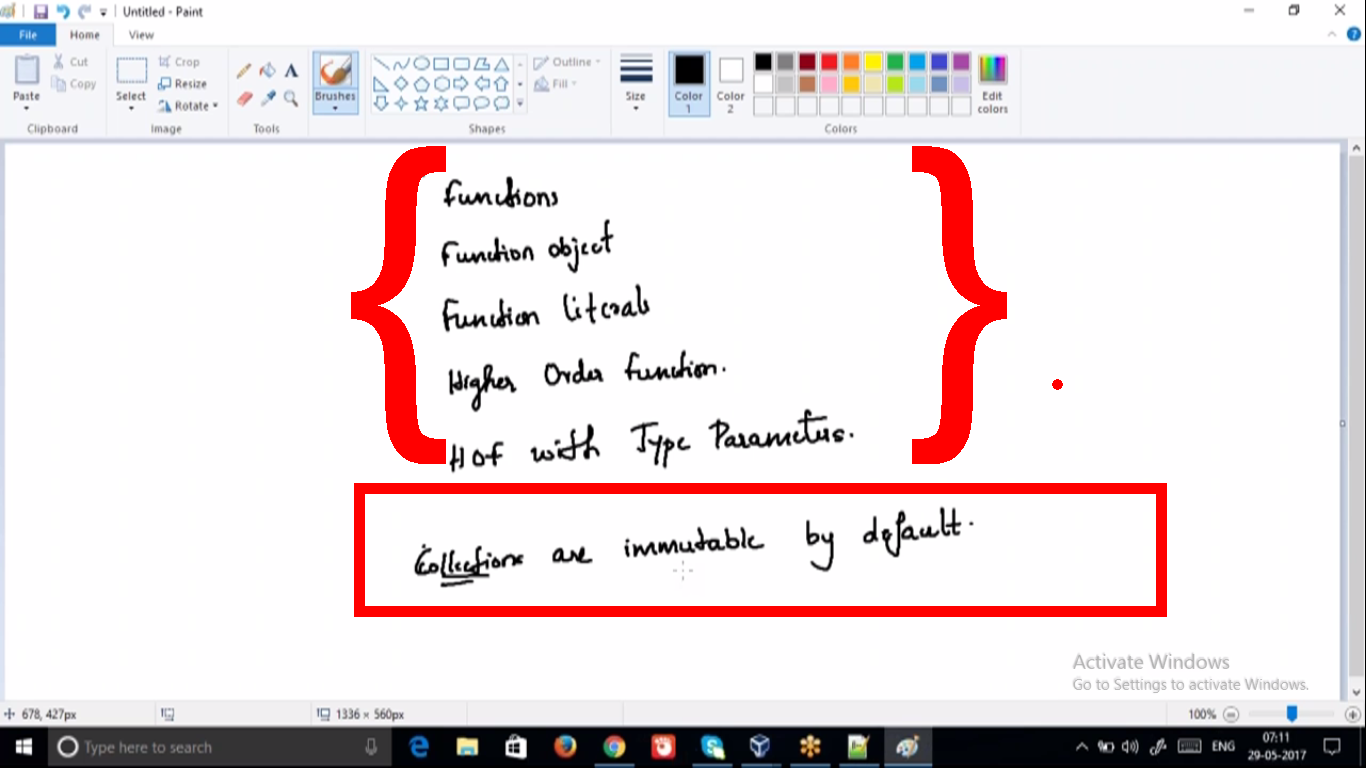 Untitled - Paint
File Home View
Cut
Copy
Paste
Clipboard
Select
Crop
Resize
Rotate
Image
Tools
Brushes
Outline
Fill
Shapes
Size
Color 1
Color 2
Edit colors
Colors
Functions
Function object
Function literals
Higher Order Function.
HOF with Type Parameters.
Collections are immutable by default.
Activate Windows
Go to Settings to activate Windows.
678, 427px
1336 × 560px
100%
Type here to search
ENG
07:11
29-05-2017